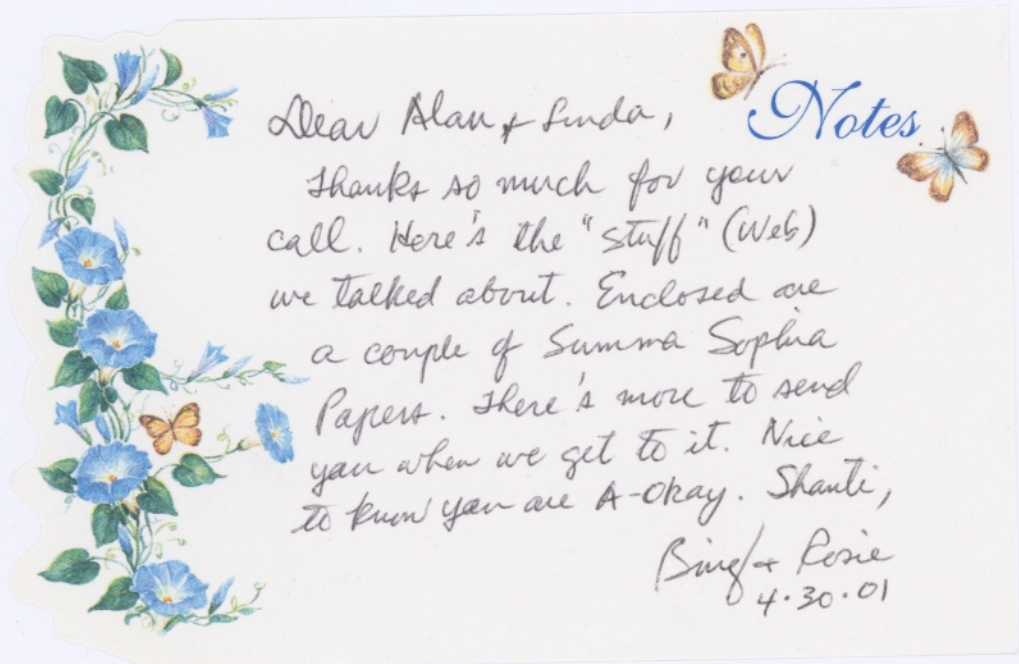 Notes
Dear Alan & Linda,
Thanks so much for your
call. Here's the "stuff" (Web)
we talked about. Enclosed are
a couple of Summa Sophia
Papers. There's more to send
you when we get to it. Nice
to know you are A-Okay. Shanti,
Bing & Rosie
4.30.01